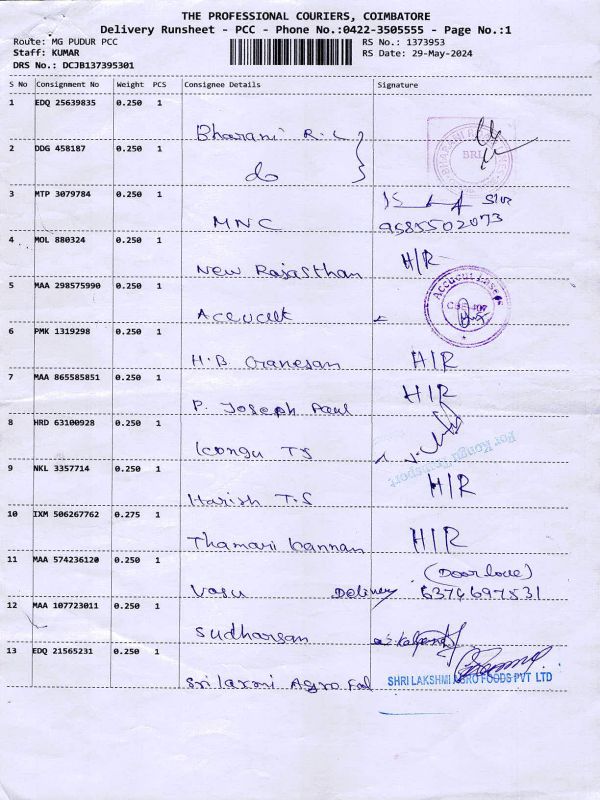 THE PROFESSIONAL COURIERS, COIMBATORE
Delivery Runsheet - PCC - Phone No.:0422-3505555 - Page No.:1
Route: MG PUDUR PCC
RS No.: 1373953
Staff: KUMAR
RS Date: 29-May-2024
DRS No.: DCJB137395301
S No Consignment No Weight PCS Consignee Details Signature
1 EDQ 25639835 0.250 1
Bharani R.C
2 DDG 458187 0.250 1
do
3 MTP 3079784 0.250 1
MNC 9585502073
4 MOL 880324 0.250 1
New Rajasthan H/R
5 MAA 298575990 0.250 1
Accucult
6 PMK 1319298 0.250 1
H.B Ganesan H/R
7 MAA 865585851 0.250 1
P. Joseph Paul H/R
8 HRD 63100928 0.250 1
Kongu TS For Kongu Transport
9 NKL 3357714 0.250 1
Harish T.S H/R
10 IXM 506267762 0.275 1
Thamarai Kannan H/R
11 MAA 574236120 0.250 1
(Door lock)
Vasu Delivery 6374697531
12 MAA 107723011 0.250 1
Sudharsan
13 EDQ 21565231 0.250 1
Sri laxmi Agro Fod SHRI LAKSHMI AGRO FOODS PVT LTD